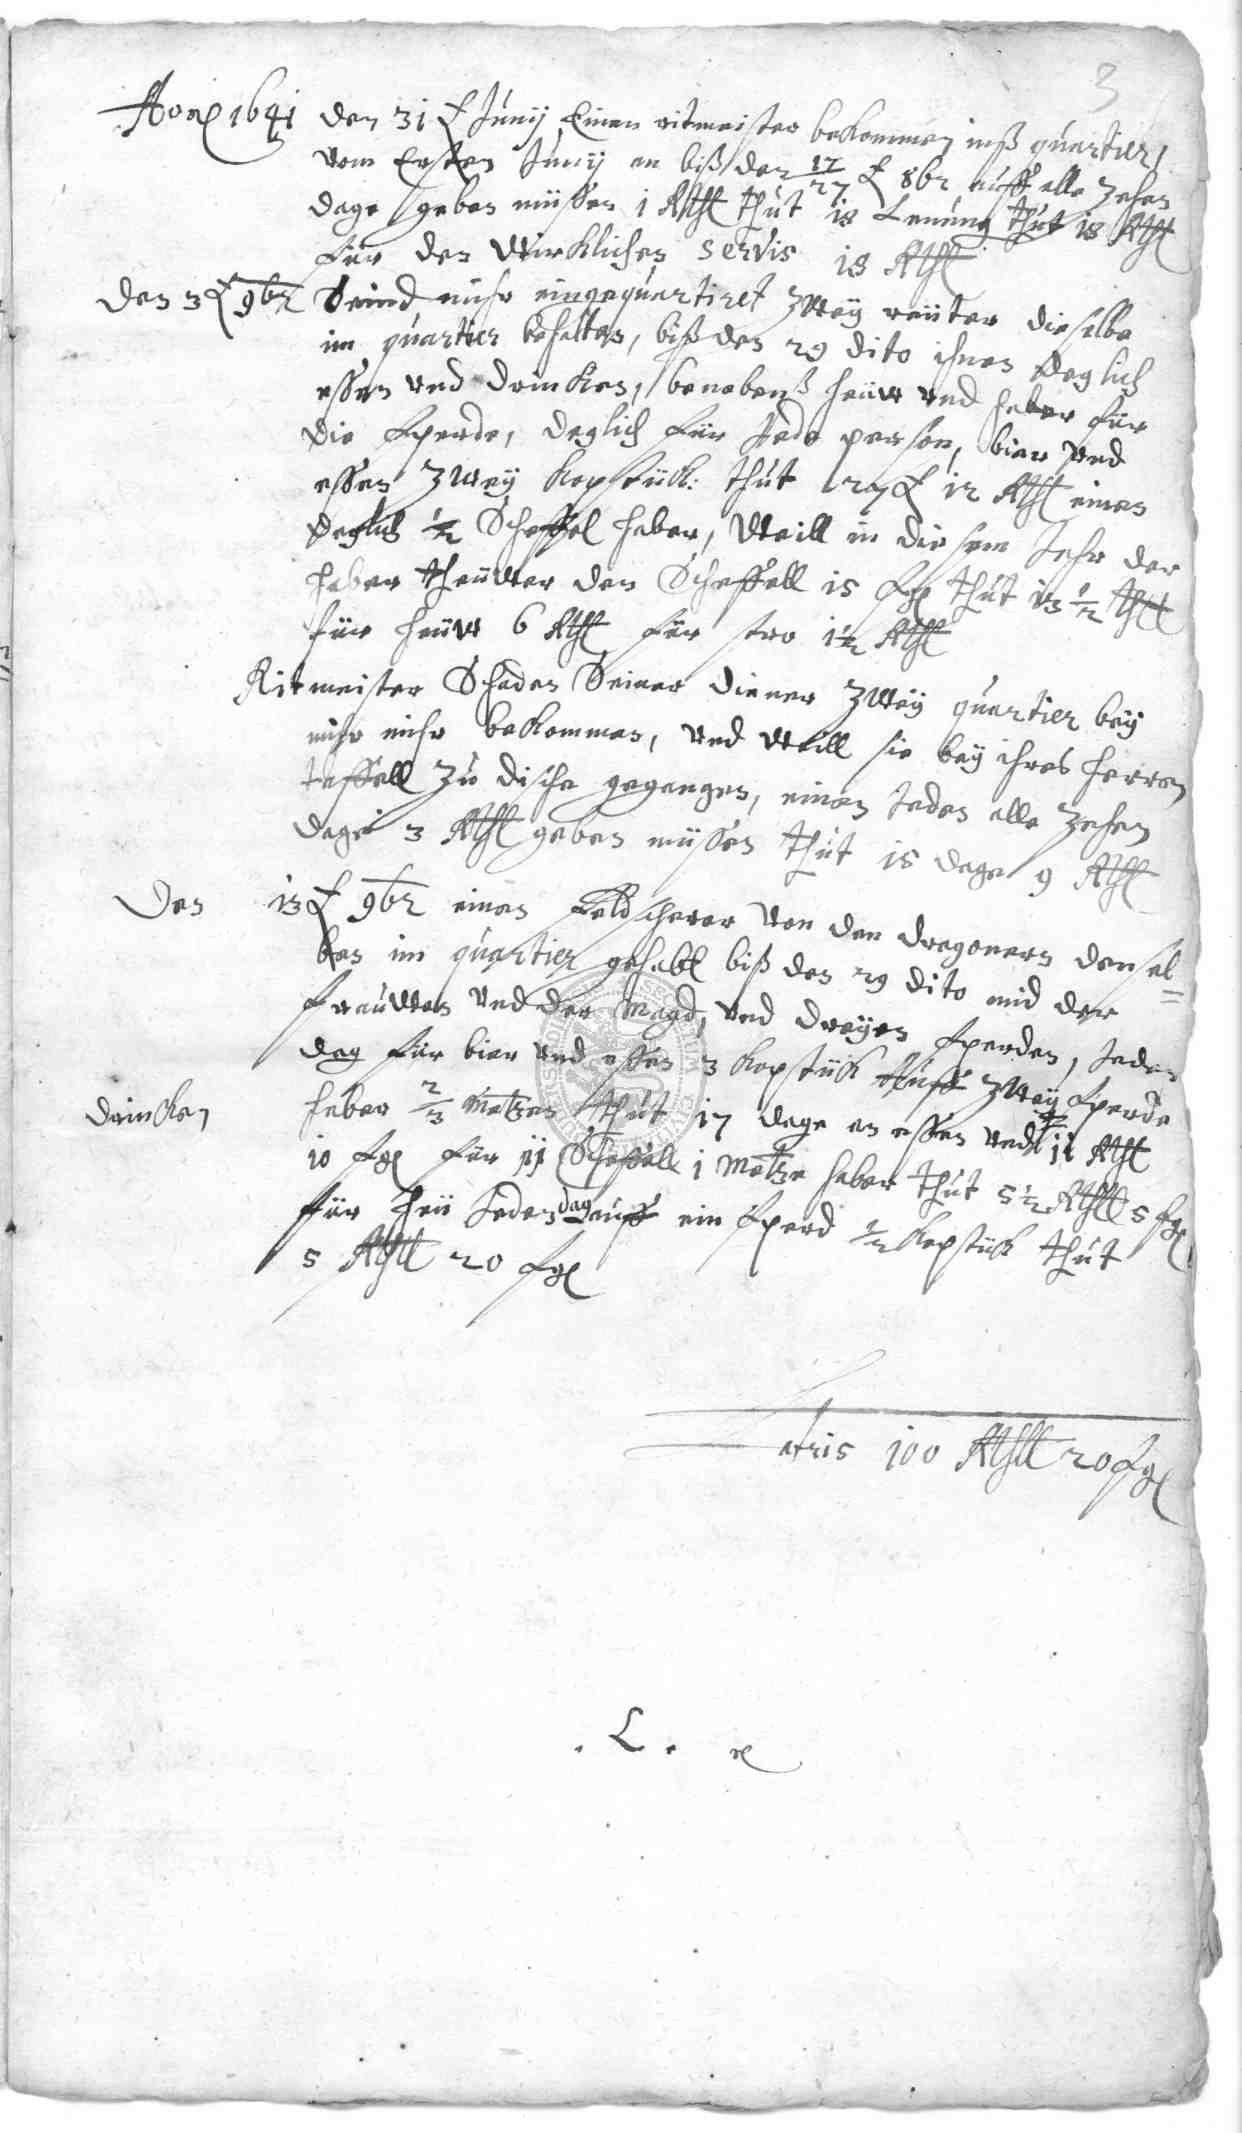 3
Anno 1641 den 31 Junij Einen ritmeister bekommen inß quartier,
vom Ersten Junij an biß den 17/27 8br auff alle zehen
dage geben müssen 1 Rthl thut 18 Lenung thut 18 Rthl
für den wirklichen servis 18 Rthl
Den 3 9br Seind mihr eingequartiret zweÿ reüter dieselbe
im quartier behalten, biß den 29 dito ihnen deglich
essen und drincken, benebenß heüw und haber für
die pferde, deglich für Jede person, bier und
essen zweÿ kopstück: thut 12 Rthl einen
deglich 1/2 Scheffel haber, Weill in diesem Jahr der
haber theüwer den Scheffell 15 fgl thut 13 1/2 thll
für heüw 6 Rthl für stro 1 1/2 Rthl
Ritmeister Schaden Seiner diener zweÿ quartier beÿ
mihr bekommen, und weill sie beÿ ihres herren
taffell zu dische gegangen, einen Jeden alle zehen
dage 3 Rthl geben müssen thut 15 dage 9 Rthl
Den 13 9br einen Feldscherer von den dragonern densel=
ben im quartier gehabt biß den 29 dito mid der
frauwen und der magd, und dreÿen pferden, Jeden
dag für bier und essen 3 kopstück auff zweÿ pferde
haber 2/3 metzen thut 17 dage an essen und 11 Rthl
drincken
10 fgl für 11 Scheffell 1 metze haber thut 5 1/2 Rthll 5 fgl
für heü Jeden dag auff ein pferd 1/2 kopstück thut
5 Rthll 20 fgl
Latris 100 Rthll 20 fgl
. L .